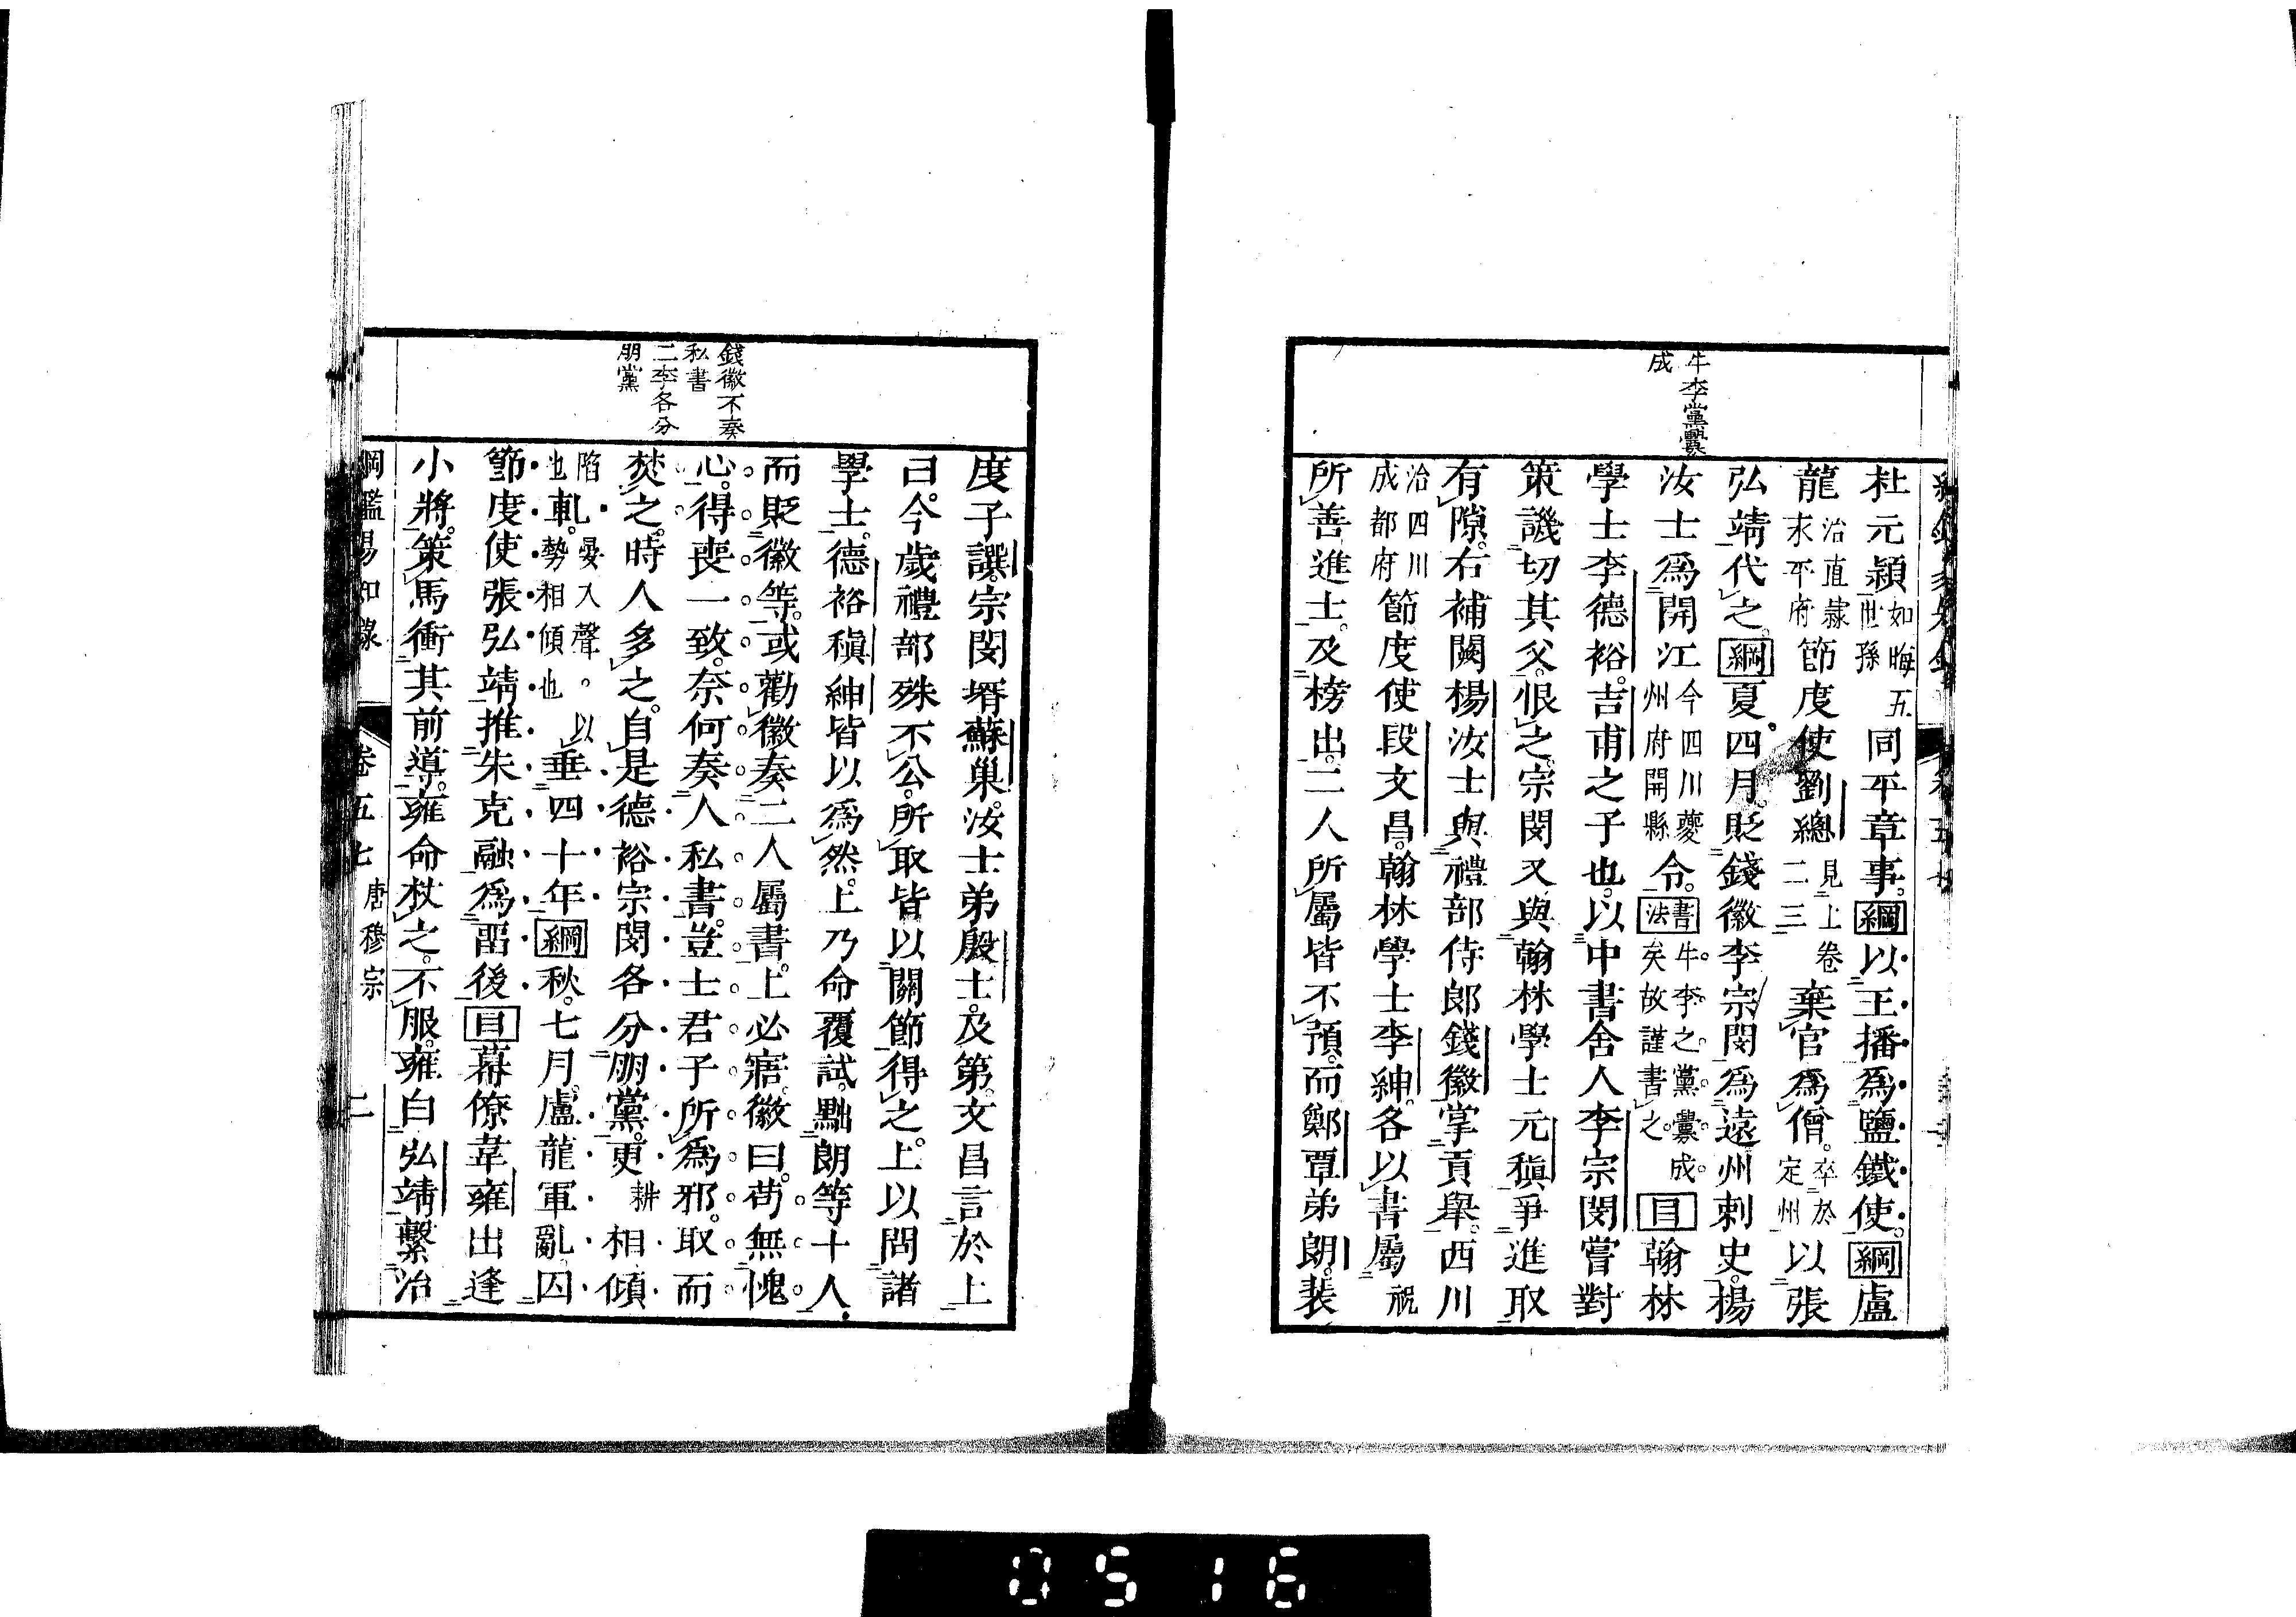 牛李黨釁
成
杜元穎如晦五世孫同平章事。綱以王播爲鹽鐵使。綱盧
龍治直隸永平府節度使劉總見上卷二三棄官爲僧。卒於定州以張
弘靖代之。綱夏。四月。貶錢徽李宗閔爲遠州刺史。楊
汝士爲開江今四川夔州府開縣令。書法牛李之黨釁成矣故謹書之。目翰林
學士李德裕。吉甫之子也。以中書舍人李宗閔嘗對
策譏切其父。恨之。宗閔又與翰林學士元稹爭進取
有隙。右補闕楊汝士與禮部侍郎錢徽掌貢舉。西川
治四川成都府節度使段文昌。翰林學士李紳。各以書屬祝
所善進士。及榜出。二人所屬皆不預。而鄭覃弟朗。裴
錢徽不奏
私書
二李各分
朋黨
度子譔。宗閔壻蘇巢。汝士弟殷士。及第。文昌言於上
曰。今歲禮部殊不公。所取皆以關節得之。上以問諸
學士。德裕稹紳皆以爲然。上乃命覆試。黜朗等十人。
而貶徽等。或勸徽奏二人屬書。上必寤。徽曰。苟無愧
心。得喪一致。奈何奏人私書。豈士君子所爲邪。取而
焚之。時人多之。自是德裕宗閔各分朋黨。更耕相傾
陷也軋。晏入聲。以勢相傾也垂四十年綱秋。七月。盧龍軍亂囚
節度使張弘靖推朱克融爲畱後目幕僚韋雍出逢
小將。策馬衝其前導。雍命杖之。不服。雍白弘靖繫治
綱鑑易知錄 卷五七 唐穆宗 二
0516